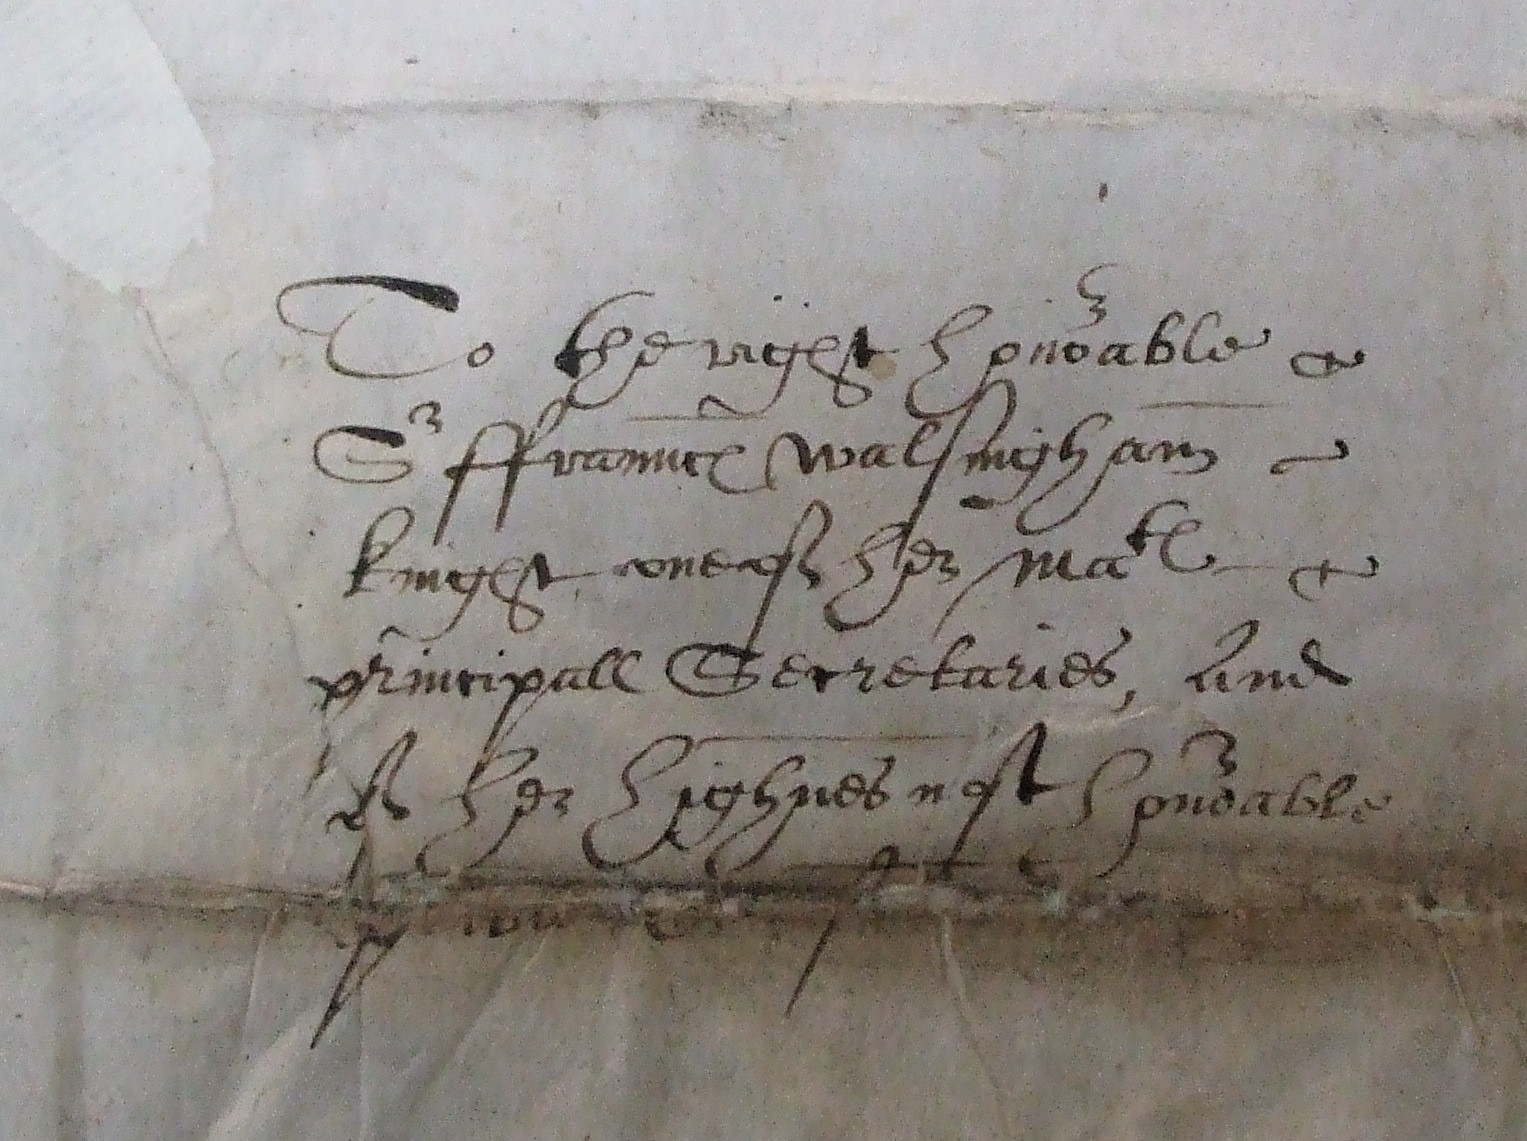 To the right honorable
Sr ffrauncs Walsingham
knight one of her Matie
principall Secretaries, And
of her highnes most honorable